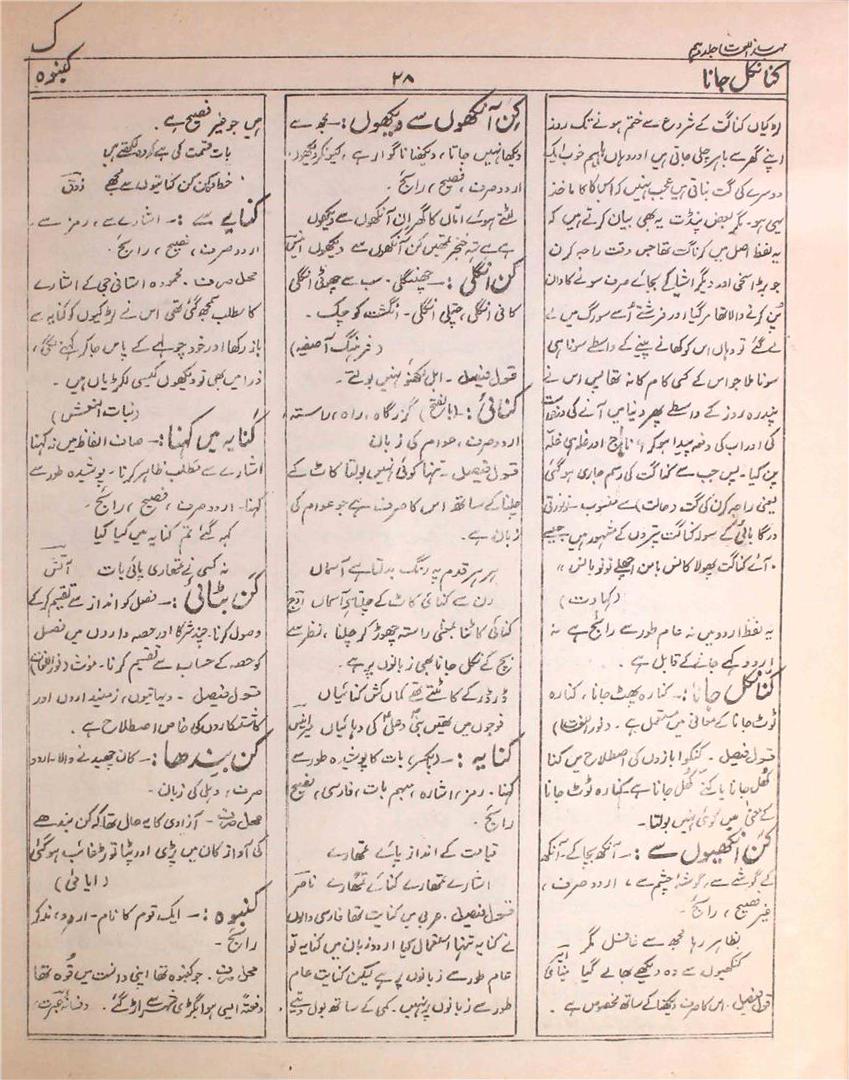 ک
مہذب اللغات جلد دہم
کنا نکل جانا
۲۸
کنبوہ
لڑکیاں کناگت کے شروع سے ختم ہونے تک روز
اپنے گھر سے باہر چلی جاتی ہیں اور وہاں باہم خوب ایک
دوسرے کی گت بناتی ہیں عجب نہیں کہ اس کا ماخذ
یہی ہو۔ مگر بعض پنڈت یہ بھی بیان کرتے ہیں کہ
یہ لفظ اصل میں کرناگت تھا جس وقت راجہ کرن
جو بڑا سخی اور دیگر اشیا کے بجائے صرف سونے کا دان
پُن کرنے والا تھا مر گیا اور فرشتے اُسے سورگ میں لے
لے گئے تو وہاں اس کو کھانے پینے کے واسطے سونا ہی
سونا ملا جو اس کے کسی کام کا نہ تھا پس اس نے
پندرہ روز کے واسطے پھر دنیا میں آنے کی درخواست
کی اور اب کی دفعہ پیدا ہو کر اناج اور غلہ ہی غلہ
پن کیا۔ پس جب سے کناگت کی رسم جاری ہو گئی
یعنی راجہ کرن کی گت (حالت) سے منسوب
درگا بائی کے سولہ کناگت پتروں کے مشہور ہیں جیسے
آئے کناگت پھولا کانس بامن اچھلے نو نو بانس
(کہاوت)
یہ لفظ اردو میں نہ عام طور سے رائج ہے نہ
اردو کہے جانے کے قابل ہے۔
کنا نکل جانا :۔ کنارہ پھٹ جانا، کنارہ
ٹوٹ جانا کے معانی میں مستعمل ہے۔ (نور اللغات)
قول فیصل۔ کنکوا بازوں کی اصطلاح میں کنا
کھل جانا یا کنے کھل جانا ہے۔ کنارہ ٹوٹ جانا
کے معنی میں کوئی نہیں بولتا۔
کن انکھیوں سے :۔ آنکھ بچا کے۔ آنکھ
کے گوشے سے، گوشۂ چشم سے، اردو صرف،
غیر فصیح، رائج۔
بظاہر رہا مجھ سے غافل مگر
کنکھیوں سے وہ دیکھے بھالے گیا
قول فیصل۔ اس کا صرف دیکھنا کے ساتھ مخصوص ہے۔
کن آنکھوں سے دیکھوں :۔ مجھ سے
دیکھا نہیں جاتا، دیکھنا ناگوار ہے، کیونکر دیکھوں،
اردو صرف، فصیح، رائج۔
لٹتے ہوئے اماں کا گھر ان آنکھوں سے دیکھوں
ہے ہے تہ خنجر تمھیں کن آنکھوں سے دیکھوں انیس
کن انگلی :۔ چھنگلی۔ سب سے چھوٹی انگلی
کانی انگلی، چپلی انگلی۔ انگشت کوچک۔
(فرہنگ آصفیہ)
قول فیصل۔ اہل لکھنؤ نہیں بولتے۔
کنائی :۔ (بالفتح) گزرگاہ، راہ، راستہ،
اردو صرف، عوام کی زبان
قول فیصل۔ تنہا کوئی نہیں بولتا کاٹ کے
چلنا کے ساتھ اس کا صرف ہے جو عوام کی
زبان ہے۔
ہر ہر قدم پہ رنگ بدلتا ہے آسماں
دن سے کنائی کاٹ کے چلتا ہے آسماں اوج
کنائی کاٹنا بمعنی راستہ چھوڑ کر چلنا، نظر سے
بچ کے نکل جانا بھی زبانوں پر ہے۔
ڈر ڈر کے کاٹتے تھے کماں کش کنائیاں
فوجوں میں تھیں نبی و علی کی دہائیاں میر انیس
کنایہ :۔ (بکسر) بات کا پوشیدہ طور سے
کہنا۔ رمز، اشارہ، مبہم بات، فارسی، فصیح
رائج۔
قیامت کے انداز پائے تمھارے
اشارے تمھارے کنائے تمھارے ناصر
قول فیصل۔ عربی میں کنایت تھا فارسی والوں
نے کنایہ تنہا استعمال کیا اردو زبان میں کنایہ تو
عام طور سے زبانوں پر ہے لیکن کنایت عام
طور سے زبانوں پر نہیں۔ کمی کے ساتھ بول دیتے
ہیں جو غیر فصیح ہے۔
بات قسمت کی ہے کہ وہ لکھتے ہیں
خط وکن کن کنایتوں سے مجھے ذوق
کنایے سے :۔ اشارے سے، رمز سے۔
اردو صرف، فصیح، رائج۔
محل صرف۔ محمودہ استانی جی کے اشارے
کا مطلب سمجھ گئی تھی اس نے لڑکیوں کو کنایہ سے
باز رکھا اور خود چولھے کے پاس جا کر کہنے لگی،
ذرا میں بھی تو دیکھوں کیسی لکڑیاں ہیں۔
(بنات النعش)
کنایہ میں کہنا :۔ صاف الفاظ میں نہ کہنا
اشارے سے مطلب ظاہر کرنا۔ پوشیدہ طور سے
کہنا۔ اردو صرف، فصیح، رائج۔
کہہ گئے تم کنایہ میں کیا کیا
نہ کسی نے تمھاری پائی بات آتش
کن بٹائی :۔ فصل کو انداز سے تقسیم کر کے
وصول کرنا۔ چند شرکا اور حصہ داروں میں فصل
کو حصہ کے حساب سے تقسیم کرنا۔ مونث (نور اللغات)
قول فیصل۔ دیہاتیوں، زمینداروں اور
کاشتکاروں کی خاص اصطلاح ہے۔
کن بیندھا :۔ کان چھیدنے والا۔ اردو
صرف، دہلی کی زبان۔
محل صرف۔ آزادی کا یہ حال تھا کہ کن بندھے
کی آواز کان میں پڑی اور پٹا توڑ غائب ہو گئی
(ایامیٰ)
کنبوہ :۔ ایک قوم کا نام۔ اردو، مذکر
رائج۔
محل صرف۔ جو کنبوہ تھا اپنی دانست میں قوہ تھا
دفعتہً ایسی ہوا بگڑی شہر سے اڑ گئے۔ (فسانۂ عبرت)